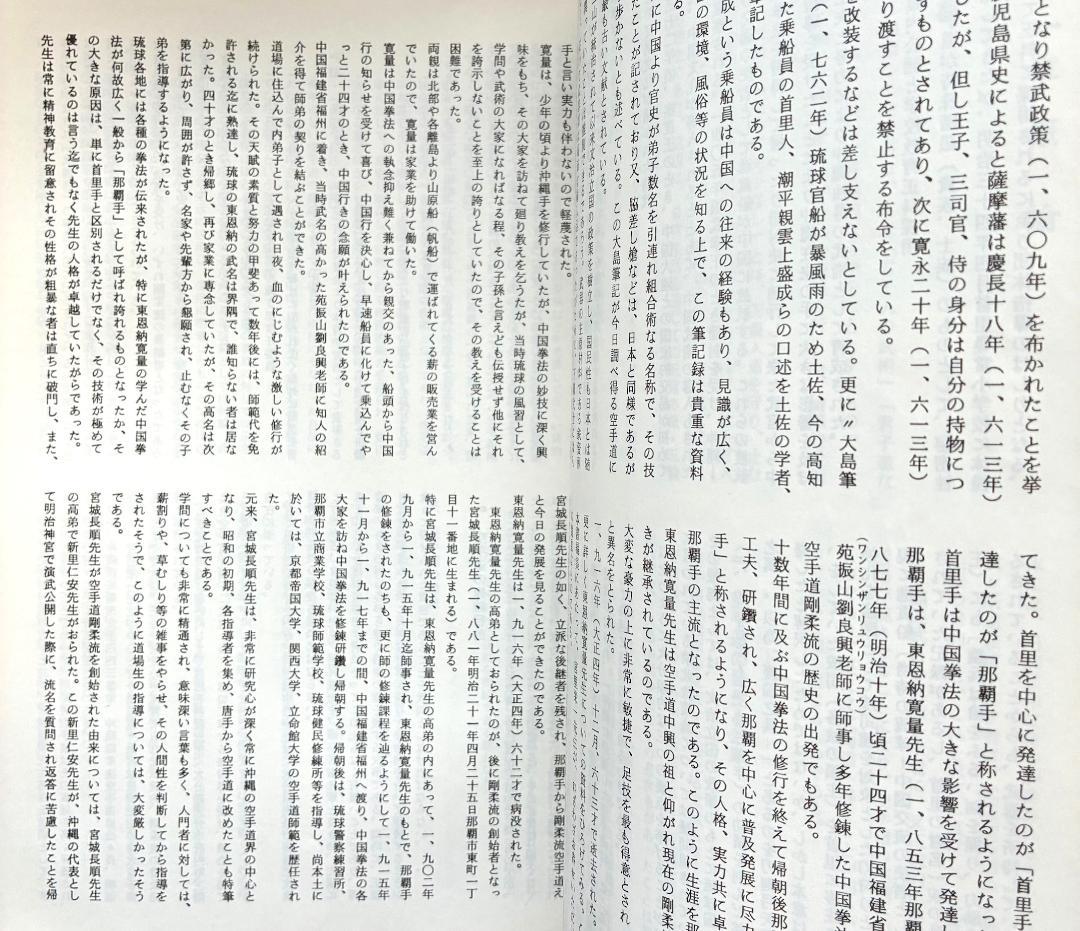 となり禁武政策（一、六〇九年）を布かれたことを挙
児島県史によると薩摩藩は慶長十八年（一、六一三年）
したが、但し王子、三司官、侍の身分は自分の持物につ
すものとされてあり、次に寛永二十年（一、六一三年）
り渡すことを禁止する布令をしている。
を改装するなどは差し支えないとしている。更に〃大島筆
（一、七六二年）琉球官船が暴風雨のため土佐、今の高知
た乗船員の首里人、潮平親雲上盛成らの口述を土佐の学者、
筆記したものである。
成という乗船員は中国への往来の経験もあり、見識が広く、
の環境、風俗等の状況を知る上で、この筆記録は貴重な資料
る。
に中国より官史が弟子数名を引連れ組合術なる名称で、その技
たことが記されており又、脇差し槍などは、日本と同様であるが
歩かないとも述べている。この大島筆記が今日調べ得る空手道に
最も古い文献とされている。
てきた。首里を中心に発達したのが「首里手
達したのが「那覇手」と称されるようになっ
首里手は中国拳法の大きな影響を受けて発達し
那覇手は、東恩納寛量先生（一、八五三年那覇
八七七年（明治十年）頃二十四才で中国福建省
（ワンシンザンリュウリョウコウ）
苑振山劉良興老師に師事し多年修錬した中国拳法
空手道剛柔流の歴史の出発でもある。
十数年間に及ぶ中国拳法の修行を終えて帰朝後那
工夫、研鑽され、広く那覇を中心に普及発展に尽力
手」と称されるようになり、その人格、実力共に卓
那覇手の主流となったのである。このように生涯を那
東恩納寛量先生は空手道中興の祖と仰がれ現在の剛柔
きが継承されているのである。
大変な豪力の上に非常に敏捷で、足技を最も得意とされ
と異名をとられた。
一、九一六年（大正四年）十二月、六十三才で病去された。
手と言い実力も伴わないので軽蔑された。
寛量は、少年の頃より沖縄手を修行していたが、中国拳法の妙技に深く興
味をもち、その大家を訪ねて廻り教えを乞うたが、当時琉球の風習として、
学問や武術の大家になればなる程、その子孫と言えども伝授せず他にそれ
を誇示しないことを至上の誇りとしていたので、その教えを受けることは
困難であった。
両親は北部や各離島より山原船（帆船）で運ばれてくる薪の販売業を営ん
でいたので、寛量は家業を助けて働いた。
寛量は中国拳法への執念抑え難く兼ねてから親交のあった、船頭から中国
行の知らせを受けて喜び、中国行を決心し、早速船員に化けて乗込んでや
っと二十四才のとき、中国行きの念願が叶えられたのである。
中国福建省福州に着き、当時武名の高かった苑振山劉良興老師に知人の紹
介を得て師弟の契りを結ぶことができた。
道場に仕込んで内弟子として遇され日夜、血のにじむような激しい修行が
続けられた。その天賦の素質と努力の甲斐あって数年後には、師範代を免
許される迄に熟達し、琉球の東恩納の武名は界隅で、誰知らない者は居な
かった。四十才のとき帰郷し、再び家業に専念していたが、その高名は次
第に広がり、周囲が許さず、名家や先輩方から懇願され、止むなくその子
弟を指導するようになった。
琉球各地には各種の拳法が伝来されたが、特に東恩納寛量の学んだ中国拳
法が何故広く一般から「那覇手」として呼ばれ誇れるものとなったか、そ
の大きな原因は、単に首里手と区別されるだけでなく、その技術が極めて
優れているのは言う迄でもなく先生の人格が卓越していたがらであった。
先生は常に精神教育に留意されその性格が粗暴な者は直ちに破門し、また、
宮城長順先生の如く、立派な後継者を残され、那覇手から剛柔流空手道え
と今日の発展を見ることができたのである。
東恩納寛量先生は一、九一六年（大正四年）六十二才で病没された。
東恩納寛量先生の高弟としておられたのが、後に剛柔流の創始者となっ
た宮城長順先生（一、八八一年明治二十一年四月二十五日那覇市東町一丁
目十一番地に生まれる）である。
特に宮城長順先生は、東恩納寛量先生の高弟の内にあって、一、九〇二年
九月から一、九一五年十月迄師事され、東恩納寛量先生のもとで、那覇手
の修錬をされたのちも、更に師の修錬課程を辿るようにして一、九一五年
十一月から一、九一七年までの間、中国福建省福州へ渡り、中国拳法の各
大家を訪ね中国拳法を修錬研鑽し帰朝する。帰朝後は、琉球警察練習所、
那覇市立商業学校、琉球師範学校、琉球健民修練所等を指導し、尚本土に
於いては、京都帝国大学、関西大学、立命館大学の空手道師範を歴任され
た。
元来、宮城長順先生は、非常に研究心が深く常に沖縄の空手道界の中心と
なり、昭和の初期、各指導者を集め、唐手から空手道に改めたことも特筆
すべきことである。
学問についても非常に精通され、意味深い言葉も多く、入門者に対しては、
薪割りや、草むしり等の雑事をやらせ、その人間性を判断してから指導を
されたそうで、このように道場生の指導については、大変厳しかったそう
である。
宮城長順先生が空手道剛柔流を創始された由来については、宮城長順先生
の高弟で新里仁安先生がおられた。この新里仁安先生が、沖縄の代表とし
て明治神宮で演武公開した際に、流名を質問され返答に苦慮したことを帰